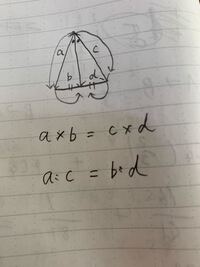 a c
b d
a × b = c × d
a : c = b : d